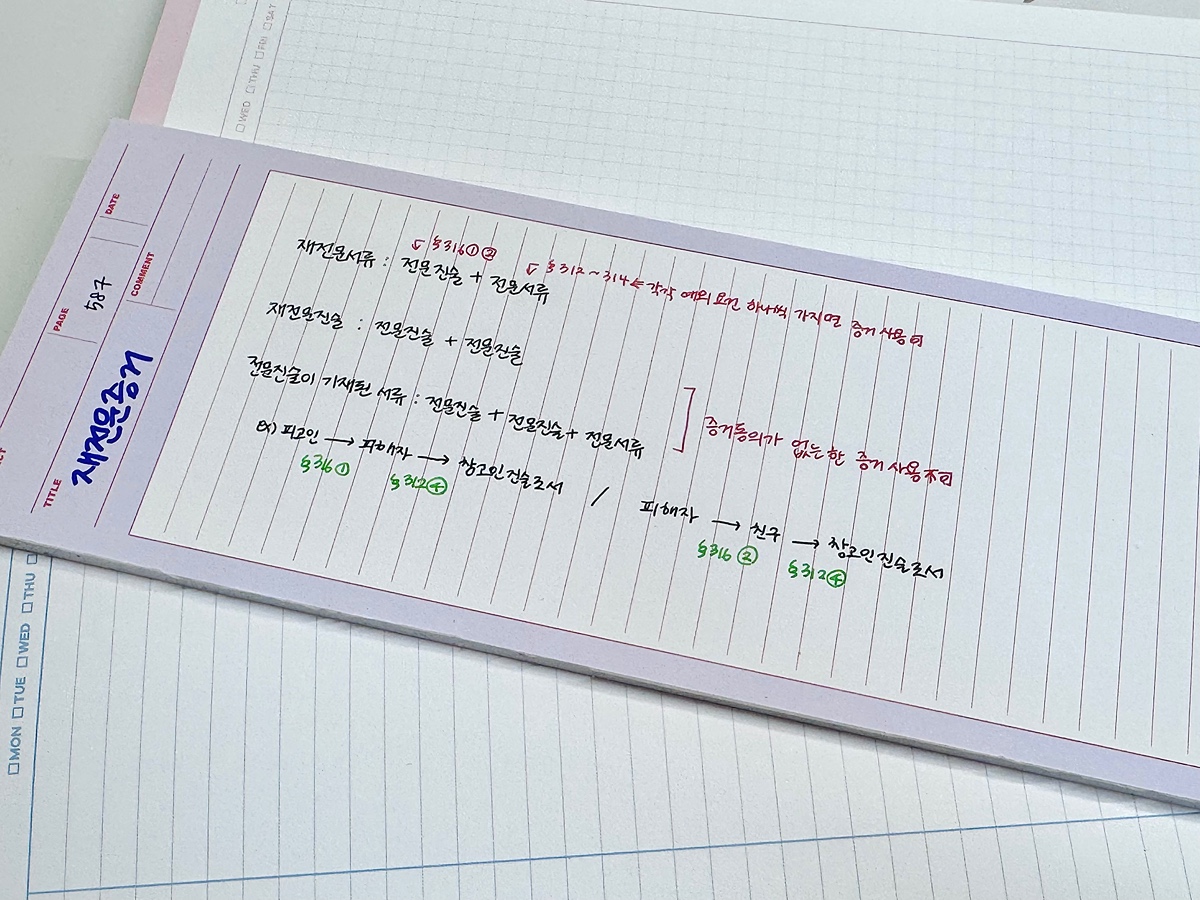 WED THU FRI SAT
DATE
PAGE 587
COMMENT
TITLE 재전문증거
↓ §316①② ↓ §312~314 ⇐ 각각 예외 요건 하나씩 가지면 증거 사용 可
재전문서류 : 전문진술 + 전문서류
재전문진술 : 전문진술 + 전문진술
전문진술이 기재된 서류 : 전문진술 + 전문진술 + 전문서류
] 증거동의가 없는 한 증거 사용 不可
ex) 피고인 → 피해자 → 참고인진술조서 / 피해자 → 친구 → 참고인진술조서
§316① §312④ §316② §312④
MON TUE WED THU